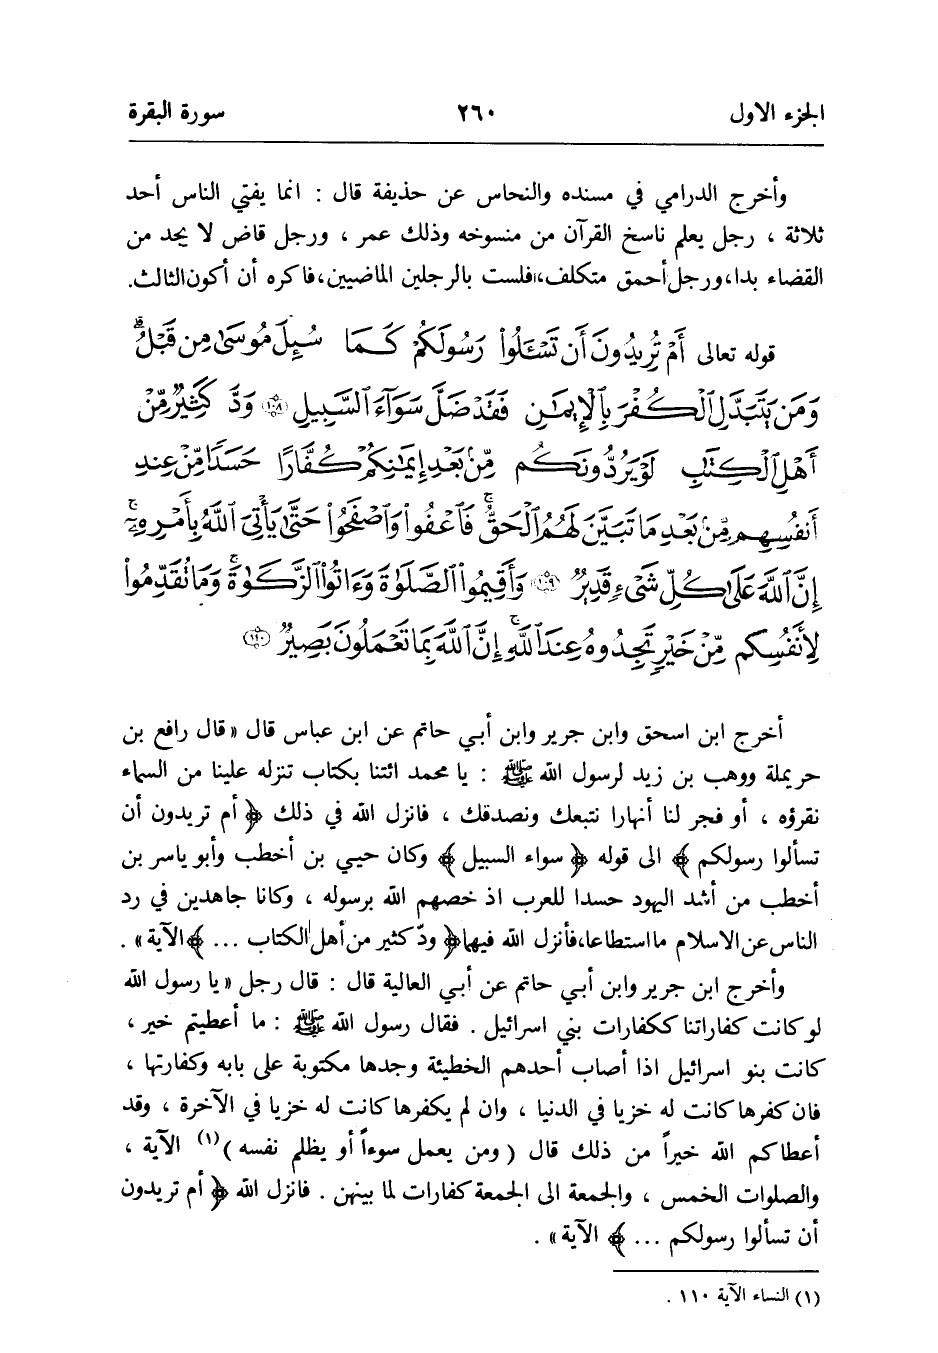 الجزء الاول ٢٦٠ سورة البقرة
وأخرج الدرامي في مسنده والنحاس عن حذيفة قال : انما يفتي الناس أحد
ثلاثة ، رجل يعلم ناسخ القرآن من منسوخه وذلك عمر ، ورجل قاض لا يجد من
القضاء بدا، ورجل أحمق متكلف، فلست بالرجلين الماضيين، فاكره أن أكون الثالث.
قوله تعالى أَمْ تُرِيدُونَ أَن تَسْـَٔلُوا۟ رَسُولَكُمْ كَمَا سُئِلَ مُوسَىٰ مِن قَبْلُ ۗ
وَمَن يَتَبَدَّلِ ٱلْكُفْرَ بِٱلْإِيمَـٰنِ فَقَدْ ضَلَّ سَوَآءَ ٱلسَّبِيلِ ۝١٠٨ وَدَّ كَثِيرٌ مِّنْ
أَهْلِ ٱلْكِتَـٰبِ لَوْ يَرُدُّونَكُم مِّنۢ بَعْدِ إِيمَـٰنِكُمْ كُفَّارًا حَسَدًا مِّنْ عِندِ
أَنفُسِهِم مِّنۢ بَعْدِ مَا تَبَيَّنَ لَهُمُ ٱلْحَقُّ ۖ فَٱعْفُوا۟ وَٱصْفَحُوا۟ حَتَّىٰ يَأْتِىَ ٱللَّهُ بِأَمْرِهِۦٓ ۗ
إِنَّ ٱللَّهَ عَلَىٰ كُلِّ شَىْءٍ قَدِيرٌ ۝١٠٩ وَأَقِيمُوا۟ ٱلصَّلَوٰةَ وَءَاتُوا۟ ٱلزَّكَوٰةَ ۚ وَمَا تُقَدِّمُوا۟
لِأَنفُسِكُم مِّنْ خَيْرٍ تَجِدُوهُ عِندَ ٱللَّهِ ۗ إِنَّ ٱللَّهَ بِمَا تَعْمَلُونَ بَصِيرٌ ۝١١٠
أخرج ابن اسحق وابن جرير وابن أبي حاتم عن ابن عباس قال « قال رافع بن
حريملة ووهب بن زيد لرسول الله ﷺ : يا محمد ائتنا بكتاب تنزله علينا من السماء
نقرؤه ، أو فجر لنا أنهارا نتبعك ونصدقك ، فانزل الله في ذلك ﴿ أم تريدون أن
تسألوا رسولكم ﴾ الى قوله ﴿ سواء السبيل ﴾ وكان حيي بن أخطب وأبو ياسر بن
أخطب من أشد اليهود حسدا للعرب اذ خصهم الله برسوله ، وكانا جاهدين في رد
الناس عن الاسلام ما استطاعا، فأنزل الله فيها ﴿ ودّ كثير من أهل الكتاب ... ﴾ الآية » .
وأخرج ابن جرير وابن أبي حاتم عن أبي العالية قال : قال رجل « يا رسول الله
لو كانت كفاراتنا ككفارات بني اسرائيل . فقال رسول الله ﷺ : ما أعطيتم خير ،
كانت بنو اسرائيل اذا أصاب أحدهم الخطيئة وجدها مكتوبة على بابه وكفارتها ،
فان كفرها كانت له خزيا في الدنيا ، وان لم يكفرها كانت له خزيا في الآخرة ، وقد
أعطاكم الله خيراً من ذلك قال ( ومن يعمل سوءاً أو يظلم نفسه ) (١) الآية ،
والصلوات الخمس ، والجمعة الى الجمعة كفارات لما بينهن . فانزل الله ﴿ أم تريدون
أن تسألوا رسولكم ... ﴾ الآية » .
(١) النساء الآية ١١٠ .